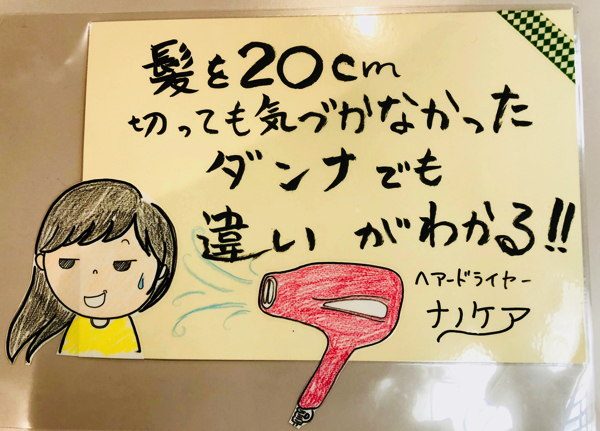 髪を20cm
切っても気づかなかった
ダンナでも
違いがわかる!!
ヘアードライヤー
ナノケア